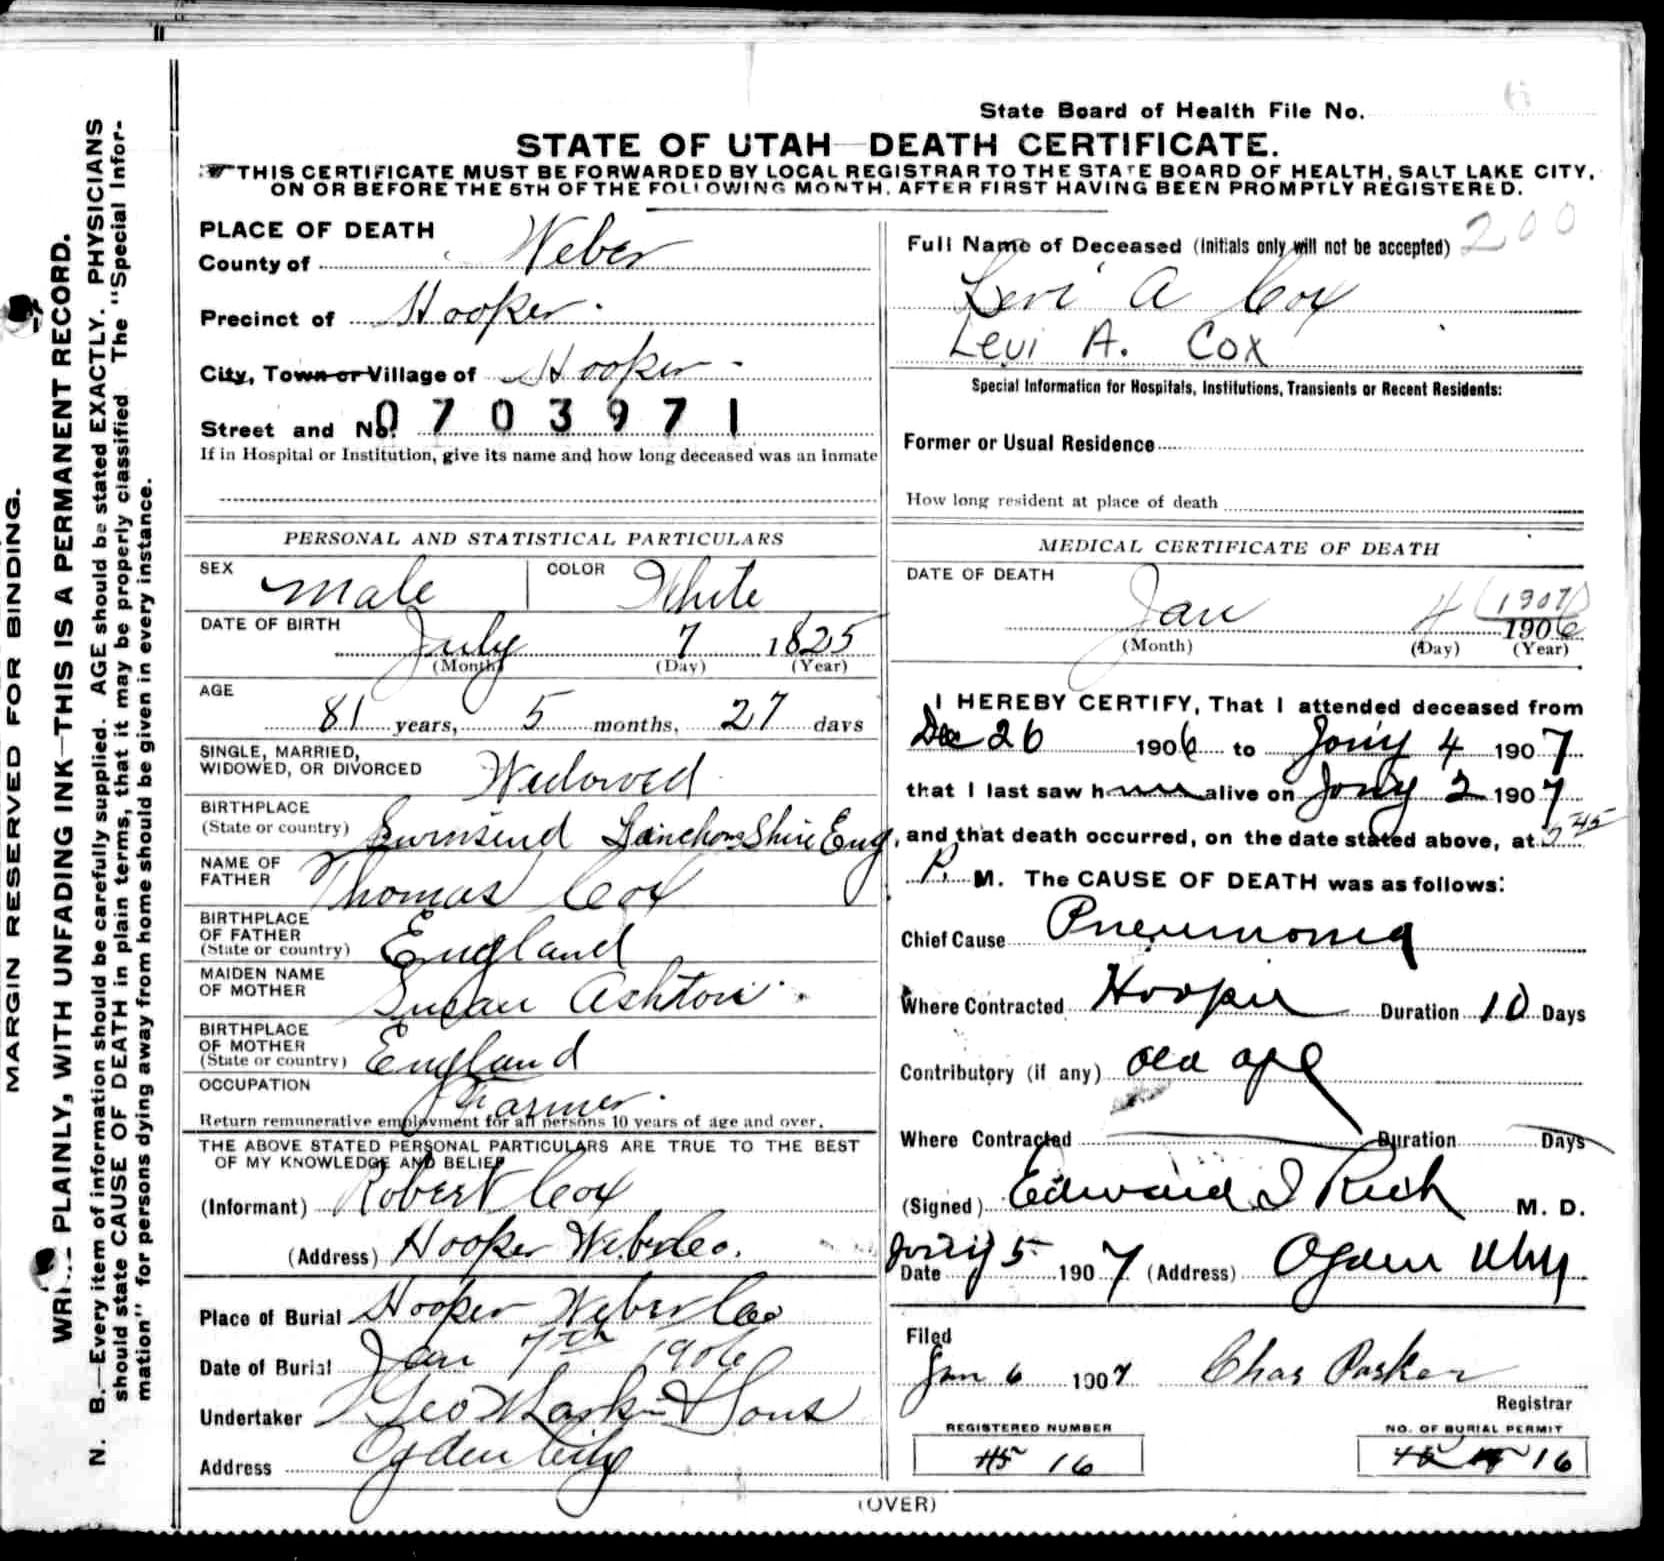 State Board of Health File No. 6
STATE OF UTAH—DEATH CERTIFICATE.
THIS CERTIFICATE MUST BE FORWARDED BY LOCAL REGISTRAR TO THE STATE BOARD OF HEALTH, SALT LAKE CITY,
ON OR BEFORE THE 5TH OF THE FOLLOWING MONTH, AFTER FIRST HAVING BEEN PROMPTLY REGISTERED.
MARGIN RESERVED FOR BINDING.
PLAINLY, WITH UNFADING INK—THIS IS A PERMANENT RECORD.
N. B.—Every item of information should be carefully supplied. AGE should be stated EXACTLY. PHYSICIANS
should state CAUSE OF DEATH in plain terms, that it may be properly classified. The "Special Infor-
mation" for persons dying away from home should be given in every instance.
PLACE OF DEATH
County of Weber
Precinct of Hooper
City, Town or Village of Hooper
Street and No. 0703971
If in Hospital or Institution, give its name and how long deceased was an inmate
PERSONAL AND STATISTICAL PARTICULARS
SEX Male COLOR White
DATE OF BIRTH
July 7 1825
(Month) (Day) (Year)
AGE
81 years, 5 months, 27 days
SINGLE, MARRIED,
WIDOWED, OR DIVORCED Widowed
BIRTHPLACE
(State or country) Eng
NAME OF
FATHER Thomas Cox
BIRTHPLACE
OF FATHER
(State or country) England
MAIDEN NAME
OF MOTHER Susan Ashton
BIRTHPLACE
OF MOTHER
(State or country) England
OCCUPATION
Farmer
Return remunerative employment for all persons 10 years of age and over.
THE ABOVE STATED PERSONAL PARTICULARS ARE TRUE TO THE BEST
OF MY KNOWLEDGE AND BELIEF
(Informant) Robert Cox
(Address) Hooper Weber Co.
Place of Burial Hooper Weber Co
Date of Burial Jan 7th 1906
Undertaker Geo & Sons
Address Ogden City
Full Name of Deceased (Initials only will not be accepted) 200
Levi A Cox
Levi A. Cox
Special Information for Hospitals, Institutions, Transients or Recent Residents:
Former or Usual Residence
How long resident at place of death
MEDICAL CERTIFICATE OF DEATH
DATE OF DEATH
Jan 4 (1907) 1906
(Month) (Day) (Year)
I HEREBY CERTIFY, That I attended deceased from
Dec 26 1906 to Jany 4 1907
that I last saw him alive on Jany 2 1907
and that death occurred, on the date stated above, at 45
P. M. The CAUSE OF DEATH was as follows:
Chief Cause Pneumonia
Where Contracted Hooper Duration 10 Days
Contributory (if any) old age
Where Contracted Duration Days
(Signed) Edward I Rich M. D.
Date Jany 5 1907 (Address) Ogden Utah
Filed
Jan 6 1907 Chas Parker
Registrar
REGISTERED NUMBER
45 16
NO. OF BURIAL PERMIT
16
(OVER)